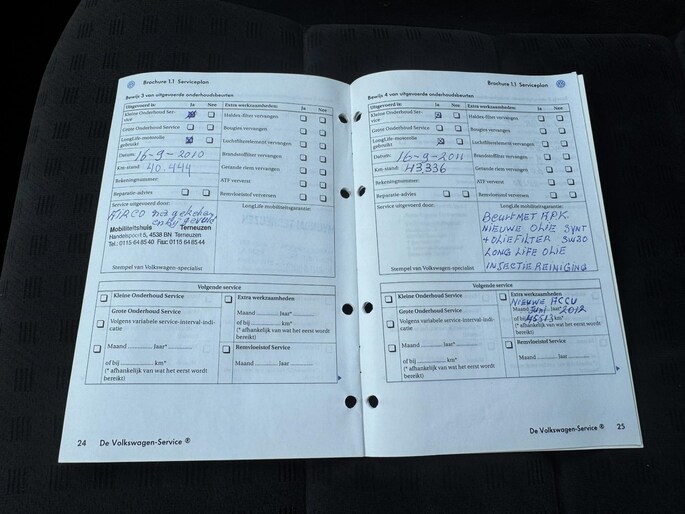 Brochure 1.1 Serviceplan
Bewijs 3 van uitgevoerde onderhoudsbeurten
Uitgevoerd is: Ja Nee
Kleine Onderhoud Ser-
vice
Grote Onderhoud Service
LongLife-motorolie
gebruikt
Datum: 16-9-2010
Km-stand: 40.444
Rekeningnummer:
Reparatie-advies
Extra werkzaamheden: Ja Nee
Haldex-filter vervangen
Bougies vervangen
Luchtfilterelement vervangen
Brandstoffilter vervangen
Getande riem vervangen
ATF verversen
Remvloeistof verversen
Service uitgevoerd door:
LongLife-mobiliteitsgarantie:
AIRCO nagekeken
Mobiliteitshuis Terneuzen
Handelspoort 5, 4538 BN Terneuzen
Tel.: 0115-64 85 40 Fax: 0115 64 85 44
Stempel van Volkswagen-specialist
Volgende service
Kleine Onderhoud Service
Grote Onderhoud Service
Volgens variabele service-interval-indi-
catie
Maand Jaar*
of bij km*
(* afhankelijk van wat het eerst wordt
bereikt)
Extra werkzaamheden
Maand Jaar*
of bij km*
(* afhankelijk van wat het eerst wordt
bereikt)
Remvloeistof Service
Maand Jaar
24 De Volkswagen-Service ®
Brochure 1.1 Serviceplan
Bewijs 4 van uitgevoerde onderhoudsbeurten
Uitgevoerd is: Ja Nee
Kleine Onderhoud Ser-
vice
Grote Onderhoud Service
LongLife-motorolie
gebruikt
Datum: 16-9-2011
Km-stand: 43336
Rekeningnummer:
Reparatie-advies
Extra werkzaamheden: Ja Nee
Haldex-filter vervangen
Bougies vervangen
Luchtfilterelement vervangen
Brandstoffilter vervangen
Getande riem vervangen
ATF verversen
Remvloeistof verversen
Service uitgevoerd door:
LongLife-mobiliteitsgarantie:
BEURT MET A.P.K.
NIEUWE OLIE SYNT
+ OLIEFILTER 5W30
LONG LIFE OLIE
INSECTIEREINIGING
Stempel van Volkswagen-specialist
Volgende service
Kleine Onderhoud Service
Grote Onderhoud Service
Volgens variabele service-interval-indi-
catie
Maand Jaar*
of bij km*
(* afhankelijk van wat het eerst wordt
bereikt)
Extra werkzaamheden
NIEUWE ACCU
Maand Juni Jaar* 2012
of bij 45513 km*
(* afhankelijk van wat het eerst wordt
bereikt)
Remvloeistof Service
Maand Jaar
De Volkswagen-Service ® 25